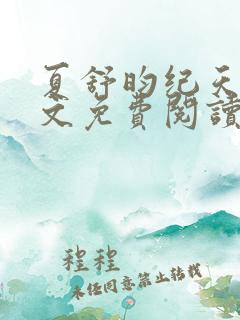 夏舒昀纪天
文免費閱讀
程程
未经同意禁止转载